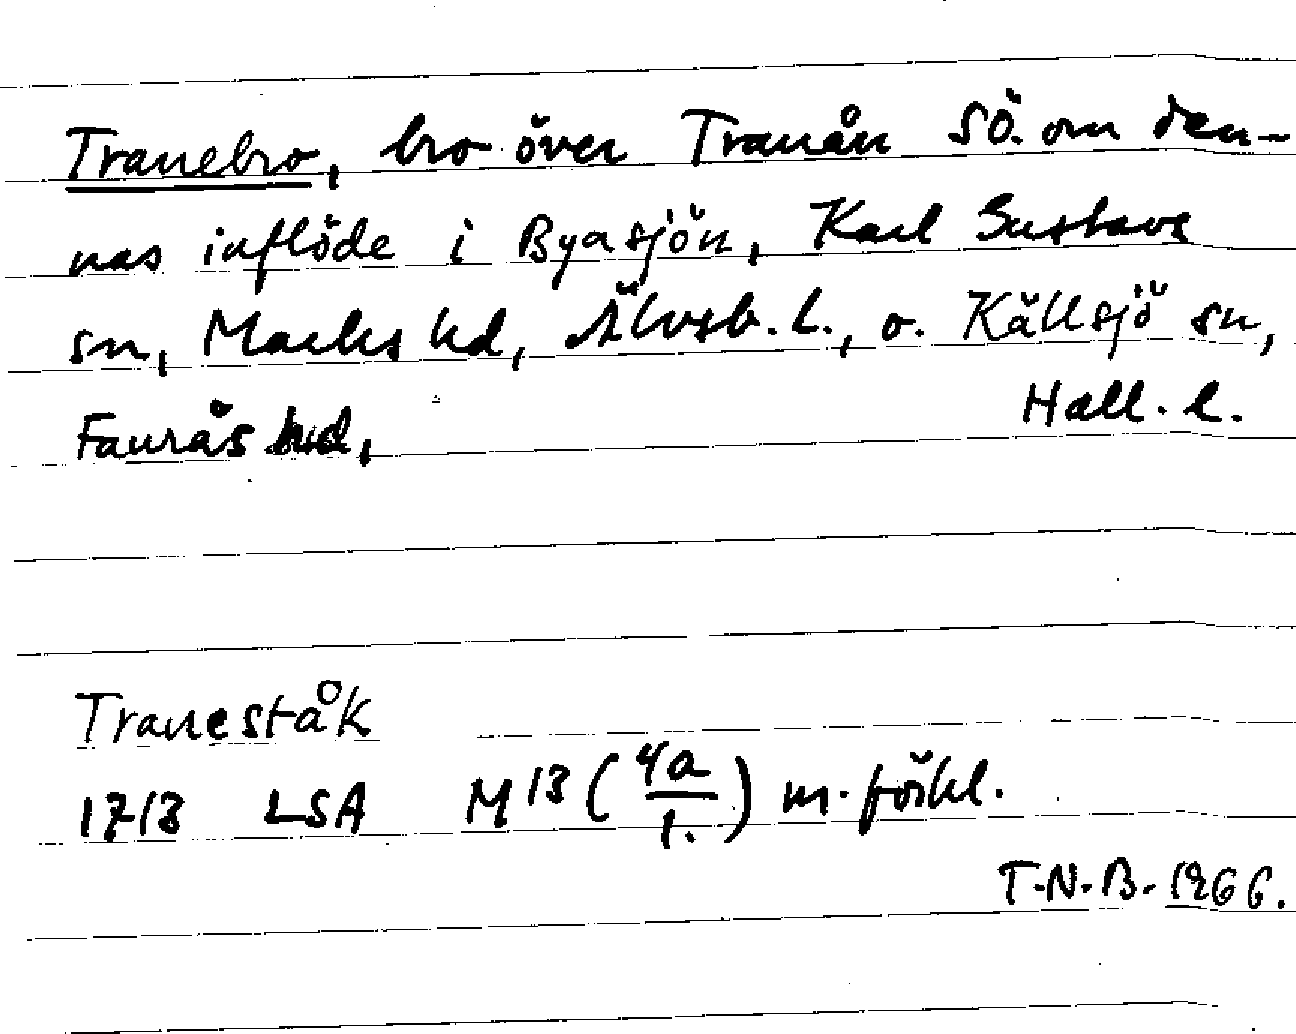 Tranebro, bro över Tranån SÖ. om den-
nas inflöde i Byasjön, Karl Gustavs
sn, Marks hd, Älvsb. l., o. Källsjö sn,
Faurås hd, Hall. l.
Traneståk
1713 LSA M13 (4a/1.) m. förkl.
T.N.B. 1966.